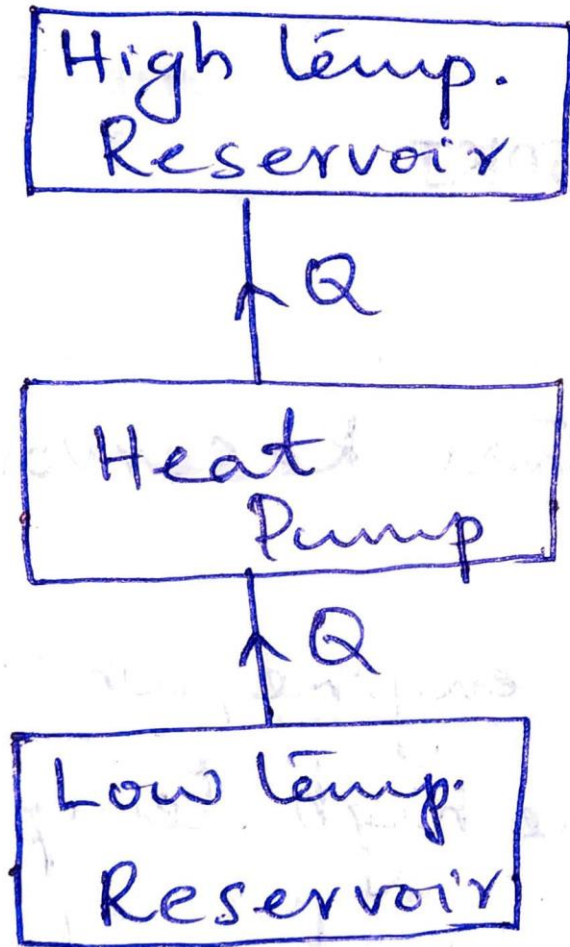 High temp.
Reservoir
Q
Heat
Pump
Q
Low temp.
Reservoir